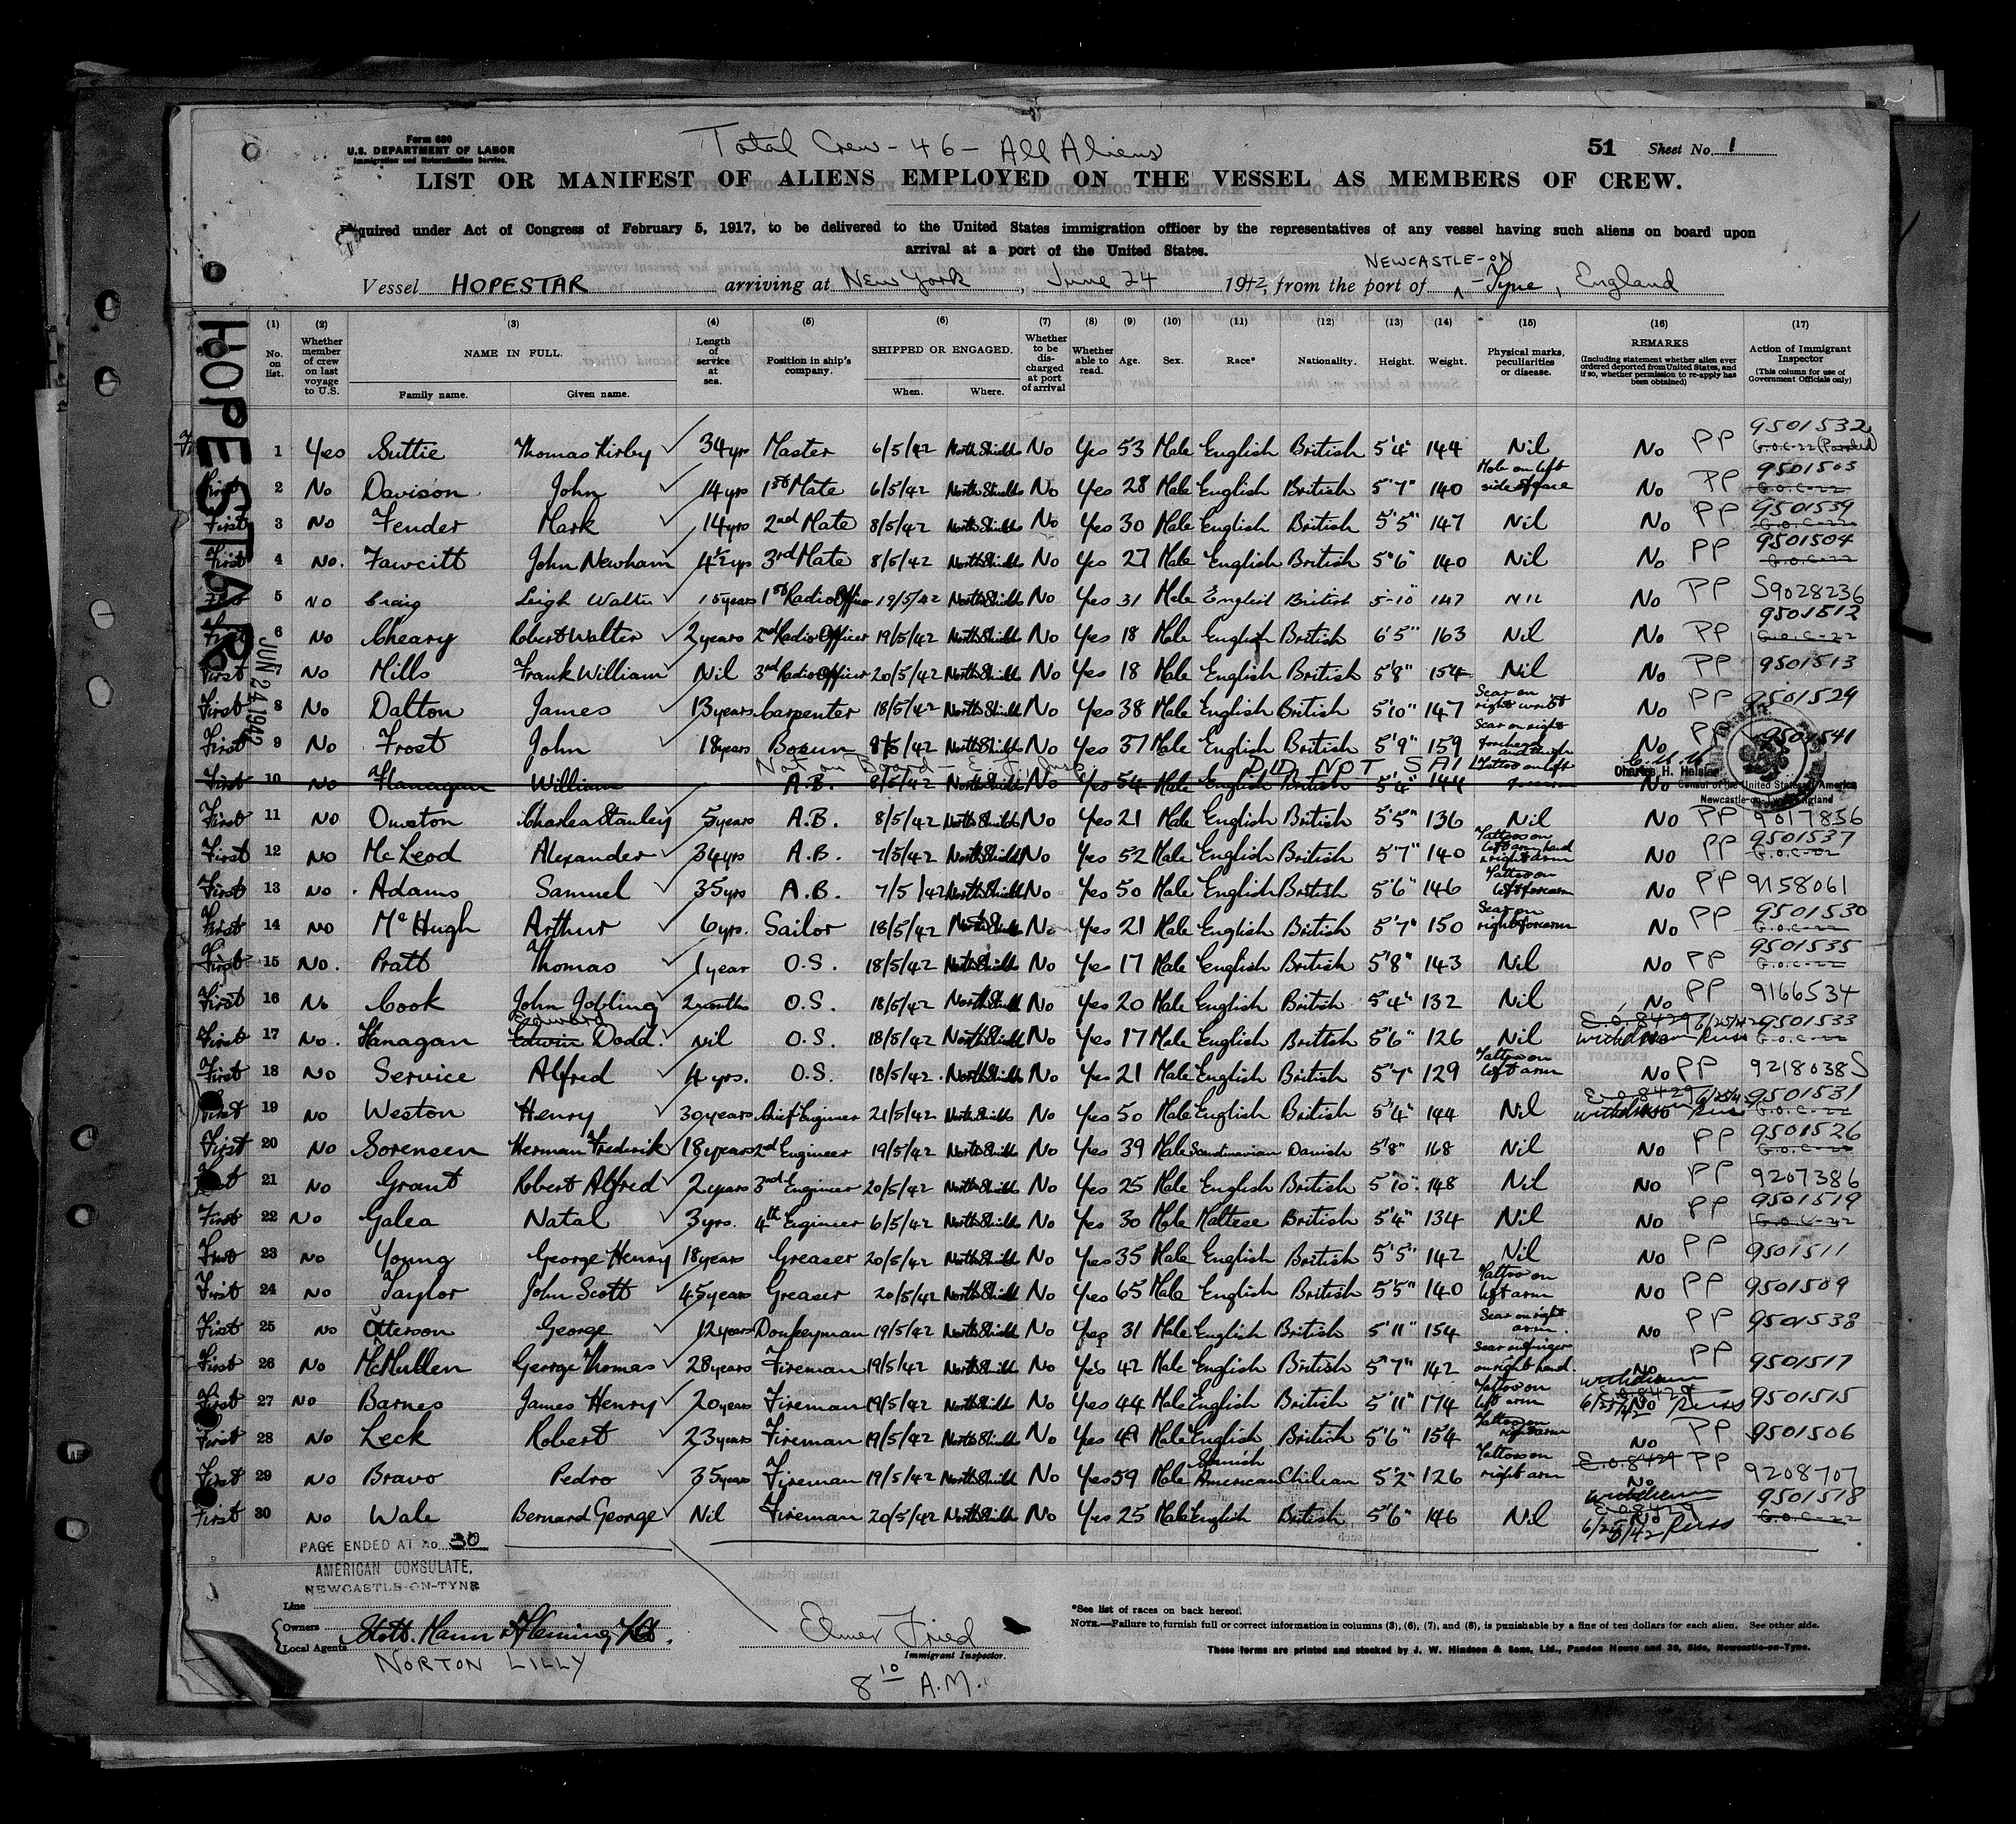 Form 680
U.S. DEPARTMENT OF LABOR
Immigration and Naturalization Service.
Total Crew - 46 - All Aliens
51 Sheet No. 1
LIST OR MANIFEST OF ALIENS EMPLOYED ON THE VESSEL AS MEMBERS OF CREW.
Required under Act of Congress of February 5, 1917, to be delivered to the United States immigration officer by the representatives of any vessel having such aliens on board upon
arrival at a port of the United States.
NEWCASTLE-ON
Vessel HOPESTAR arriving at New York, June 24 1942, from the port of -Tyne, England
HOPESTAR
JUN 24 1942
(1) (2) (3) (4) (5) (6) (7) (8) (9) (10) (11) (12) (13) (14) (15) (16) (17)
No. on list. Whether member of crew on last voyage to U.S. NAME IN FULL. Family name. Given name. Length of service at sea. Position in ship's company. SHIPPED OR ENGAGED. When. Where. Whether to be discharged at port of arrival Whether able to read. Age. Sex. Race* Nationality. Height. Weight. Physical marks, peculiarities or disease. REMARKS (Including statement whether alien ever ordered deported from United States, and if so, whether permission to re-apply has been obtained) Action of Immigrant Inspector (This column for use of Government Officials only)
1 Yes Suttie Thomas Kirby 34yrs Master 6/5/42 North Shields No Yes 53 Male English British 5'4" 144 Nil No PP 9501532
2 No Davison John 14yrs 1st Mate 6/5/42 North Shields No Yes 28 Male English British 5'7" 140 Mole on left side of face No PP 9501503 G.O.C-22
First 3 No Fender Mark 14yrs 2nd Mate 8/5/42 North Shields No Yes 30 Male English British 5'5" 147 Nil No PP 9501539 G.O.C-22
First 4 No. Fawcitt John Newham 4½yrs 3rd Mate 8/5/42 North Shields No Yes 27 Male English British 5'6" 140 Nil No PP 9501504 G.O.C-22
5 No Craig Leigh Walter 15years 1st Radio Officer 19/5/42 North Shields No Yes 31 Male English British 5-10" 147 NIL No PP S9028236
First 6 No Cheary Robert Walter 2years 2nd Radio Officer 19/5/42 North Shields No Yes 18 Male English British 6'5" 163 Nil No PP 9501512 G.O.C-22
First 7 No Mills Frank William Nil 3rd Radio Officer 20/5/42 North Shields No Yes 18 Male English British 5'8" 154 Nil No PP 9501513
First 8 No Dalton James 13years Carpenter 18/5/42 North Shields No Yes 38 Male English British 5'10" 147 Scar on right wrist No PP 9501529
First 9 No Frost John 18years Bosun 8/5/42 North Shields No Yes 37 Male English British 5'9" 159 Scar on right forehead and thigh No PP 9501541
Not on Board - DID NOT SAIL
First 10 No Flanagan William A.B. 8/5/42 North Shields No Yes 54 Male English British 5'4" 144 Tattoo on left forearm No
Charles H. Heisler
Consul of the United States of America
Newcastle-on-Tyne, England
First 11 No Owston Charles Stanley 5years A.B. 8/5/42 North Shields No Yes 21 Male English British 5'5" 136 Nil No PP 9017856
First 12 No McLeod Alexander 34yrs A.B. 7/5/42 North Shields No Yes 52 Male English British 5'7" 140 Tattoos on left arm, hand & right arm No PP 9501537 G.O.C-22
First 13 No Adams Samuel 35yrs A.B. 7/5/42 North Shields No Yes 50 Male English British 5'6" 146 Tattoo on left forearm No PP 9158061
First 14 No McHugh Arthur 6yrs. Sailor 18/5/42 North Shields No Yes 21 Male English British 5'7" 150 Scar on right forearm No PP 9501530 G.O.C-22
First 15 No. Pratt Thomas 1year O.S. 18/5/42 North Shields No Yes 17 Male English British 5'8" 143 Nil No PP 9501535 G.O.C-22
First 16 No Cook John Jobling 2months O.S. 18/5/42 North Shields No Yes 20 Male English British 5'4" 132 Nil No PP 9166534
First 17 No. Flanagan Edwin Edward Dodd. Nil O.S. 18/5/42 North Shields No Yes 17 Male English British 5'6" 126 Nil No E.O.8429 6/25/42 withdrawn Russ 9501533 G.O.C-22
First 18 No Service Alfred 4 yrs. O.S. 18/5/42 North Shields No Yes 21 Male English British 5'7" 129 Tattoo on left arm No PP 9218038S
First 19 No Weston Henry 30years Chief Engineer 21/5/42 North Shields No Yes 50 Male English British 5'4" 144 Nil No E.O.8429 withdrawn Russ 9501531 G.O.C-22
First 20 No Sorensen Herman Frederik 18years 2nd Engineer 19/5/42 North Shields No Yes 39 Male Scandinavian Danish 5'8" 168 Nil No PP 9501526 G.O.C-22
First 21 No Grant Robert Alfred 2years 3rd Engineer 20/5/42 North Shields No Yes 25 Male English British 5'10" 148 Nil No PP 9207386
First 22 No Galea Natal 3yrs. 4th Engineer 6/5/42 North Shields No Yes 30 Male Maltese British 5'4" 134 Nil No PP 9501519 G.O.C-22
First 23 No Young George Henry 18years Greaser 20/5/42 North Shields No Yes 35 Male English British 5'5" 142 Nil No PP 9501511
First 24 No Taylor John Scott 45years Greaser 20/5/42 North Shields No Yes 65 Male English British 5'5" 140 Tattoo on left arm No PP 9501509
First 25 No Otterson George 12years Donkeyman 19/5/42 North Shields No Yes 31 Male English British 5'11" 154 Scar on right arm. No PP 9501538
First 26 No McMullen George Thomas 28years Fireman 19/5/42 North Shields No Yes 42 Male English British 5'7" 142 Scar on finger on right hand. No PP 9501517
First 27 No Barnes James Henry 20years Fireman 19/5/42 North Shields No Yes 44 Male English British 5'11" 174 Tattoo on left arm No withdrawn E.O.8429 6/25/42 Russ 9501515
First 28 No Leck Robert 23years Fireman 19/5/42 North Shields No Yes 49 Male English British 5'6" 154 Tattoo on right arm No PP 9501506
First 29 No Bravo Pedro 35years Fireman 19/5/42 North Shields No Yes 59 Male Spanish American Chilean 5'2" 126 Tattoos on right arm No E.O.8429 PP 9208707
First 30 No Wale Bernard George Nil Fireman 20/5/42 North Shields No Yes 25 Male English British 5'6" 146 Nil No withdrawn E.O.8429 6/25/42 Russ 9501518 G.O.C-22
PAGE ENDED AT No 30
AMERICAN CONSULATE,
NEWCASTLE-ON-TYNE
Line
Owners Stott, Mann & Fleming Ltd.
Local Agents NORTON LILLY
Elmer Fried
Immigrant Inspector.
8 10 A.M.
*See list of races on back hereof.
NOTE.—Failure to furnish full or correct information in columns (3), (6), (7), and (8), is punishable by a fine of ten dollars for each alien. See other side.
These forms are printed and stocked by J. W. Hindson & Sons, Ltd., Pandon House and 39, Side, Newcastle-on-Tyne.